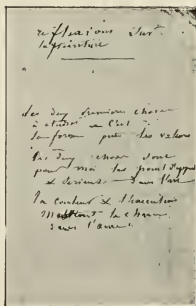 réflexions sur
la peinture
Les deux premières choses
à étudier c'est
la forme puis les valeurs
ces deux choses sont
pour moi les points d'appui
sérieux dans l'art
la couleur & l'exécution
mettent le charme
dans l'œuvre.